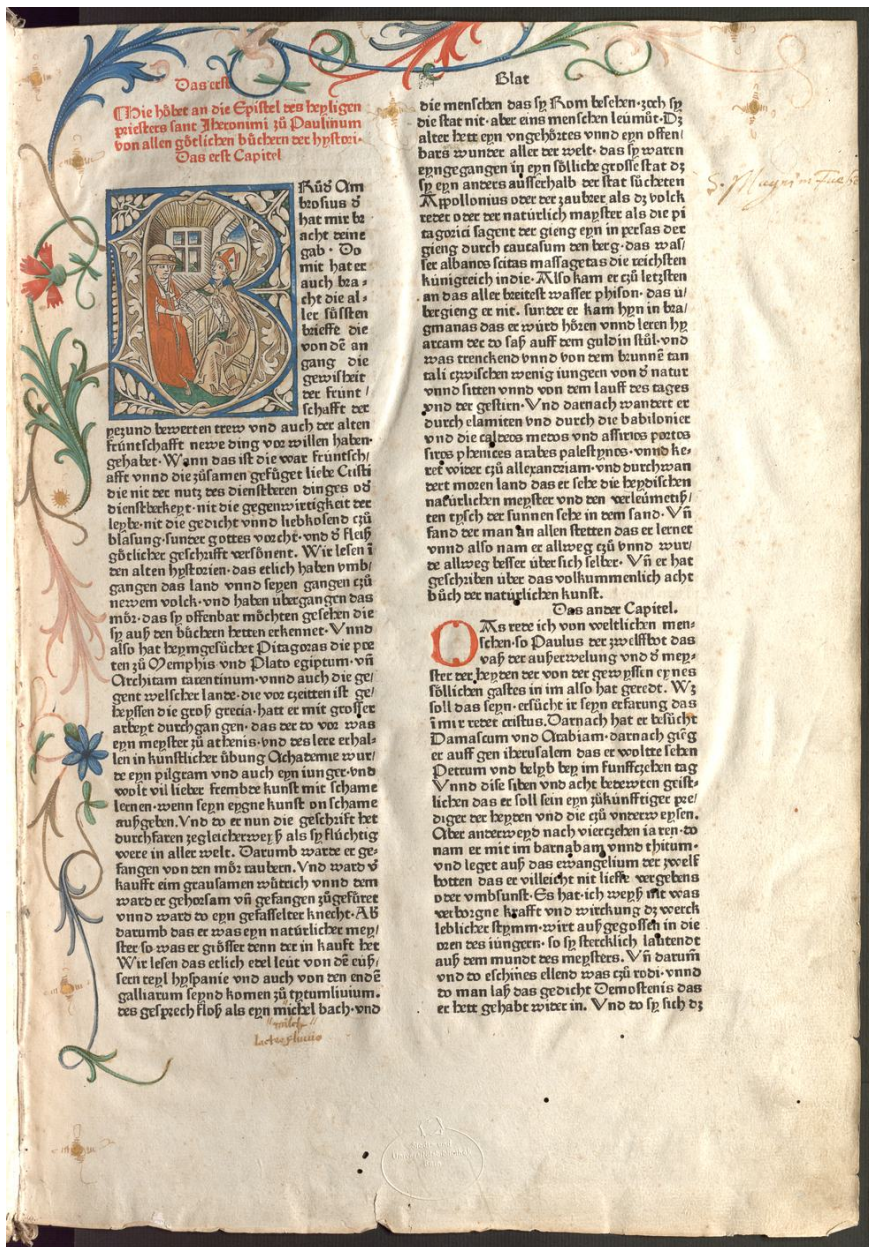 Das erst
Blat
Hie höbet an die Epistel des heyligen
priesters sant Iheronimi zů Paulinum
von allen götlichen büchern der hystori·
Das erst Capitel
Růd' Am
brosius d'
hat mir br
acht deine
gab · Do
mit hat er
auch bra⸗
cht die al⸗
ler süssten
brieffe die
von dē an
gang die
gewißheit
der frunt /
schafft der
yezund bewerten trew vnd auch der alten
früntschafft newe ding vor willen haben·
gehabet· Wann das ist die war früntsch/
afft vnnd die zůsamen gefüget liebe Cristi
die nit der nutz des dienstberen dinges od'
dienstberkeyt· nit die gegenwirtigkeit der
leybe· nit die gedicht vnnd liebkosend czů
blasung· sunder gottes vorcht· vnd d' fleiß
götlicher geschrifft versönent. Wir lesen ī
den alten hystorien· das etlich haben vmb/
gangen das land vnnd seyen gangen czů
newem volck· vnd haben übergangen das
mör· das sy offenbar möchten gesehen die
sy auß den büchern hetten erkennet· Vnnd
also hat heymgesůchet Pitagoras die poe
ten zů Memphis vnd Plato egiptum· vñ
Architam tarentinum· vnnd auch die ge/
gent welscher lande· die vor czeitten ist ge/
heyssen die groß grecia· hatt er mit grosser
arbeyt durchgangen· das der do vor was
eyn meyster zů athenis· vnd des lere erhal⸗
len in kunstlicher übung Achademie wur/
de eyn pilgram vnd auch eyn iunger· vnd
wolt vil lieber frembde kunst mit schame
lernen· wenn seyn eygne kunst on schame
außgeben. Vnd do er nun die geschrift het
durchfaren zegleicherweyß als sy flüchtig
were in aller welt. Darumb warde er ge⸗
fangen von den mör raubern. Vnd ward v'
kaufft eim grausamen wütrich vnnd dem
ward er gehorsam vñ gefangen zůgefüret
vnnd ward do eyn gefasselter knecht· Aber
darumb das er was eyn natürlicher mey/
ster so was er grösser denn der in kauft het
Wir lesen das etlich edel leüt von dē eüß/
sern teyl hyspanie vnd auch von den endē
galliarum seynd komen zů tytumliuium.
des gesprech floß als eyn michel bach· vnd
"milch"
lacteo fluuio
die menschen das sy Rom besehen· zoch sy
die stat nit· aber eins menschen leümůt· Dz
alter hett eyn vngehörtes vnnd eyn offen/
bars wunder aller der welt· das sy waren
eyngegangen in eyn sölliche grosse stat dz
sy eyn anders ausserhalb der stat sůchten
Appollonius oder der zaubrer als dz volck
redet oder der natürlich mayster als die pi
tagorici sagent der gieng eyn in persas der
gieng durch caucasum den berg· das was/
ser albanos scitas massagetas die reichsten
künigreich indie· Also kam er czů letzsten
an das aller breitest wasser phison· das ü/
bergieng er nit. sunder er kam hyn in bra/
gmanas das er würd hören vnnd leren hy
arcam der do saß auff dem guldin stůl· vnd
was trenckend vnnd von dem brunnē tan
tali czwischen wenig iungern von d' natur
vnnd sitten vnnd von dem lauff des tages
vnd der gestirn· Vnd darnach wandert er
durch elamiten vnd durch die babilonier
vnd die caldeos medos vnd assirios partos
siros phenices arabes palestynos· vnnd ke⸗
ret wider czů allexandriam· vnd durchwan
dert moren land das er sehe die heydischen
natürlichen meyster vnd den verleümetiß/
ten tysch der sunnen sehe in dem sand· Vñ
fand der man an allen stetten das er lernet
vnnd also nam er allweg czů vnnd wur/
de allweg besser über sich selber· Vñ er hat
geschriben über das volkummenlich acht
bůch der natürlichen kunst.
Das ander Capitel.
As rede ich von weltlichen men⸗
schen· so Paulus der zwelffbot das
vaß der außerwelung vnd d' mey⸗
ster der heyden der von der gewyssin eynes
söllichen gastes in im also hat geredt. Wz
soll das seyn· ersücht ir seyn erfarung das
ī mir redet cristus. Darnach hat er besücht
Damascum vnd Arabiam· darnach gieng
er auff gen iherusalem das er woltte sehen
Petrum vnd belyb bey im funffczehen tag
Vnnd dise siben vnd acht bedewten geist⸗
lichen das er soll sein eyn zükünfftiger pre/
diger der heyden vnd die czů vnderweysen.
Aber anderweyd nach vierczehen iaren· do
nam er mit im barnabam vnnd thitum·
vnd leget auß das ewangelium der zwelf
botten das er villeicht nit lieffe vergebens
oder vmbsunst· Es hat· ich weyß nit was
verborgne krafft vnd wirckung dz werck
leblicher stymm· wirt außgegossen in die
oren des iungern· so sy stercklich lautendt
auß dem mundt des meysters. Vñ darum̄
vnd do eschines ellend was czů rodi· vnnd
do man laß das gedicht Demostenis das
er hett gehabt wider in. Vnd do sy sich dz